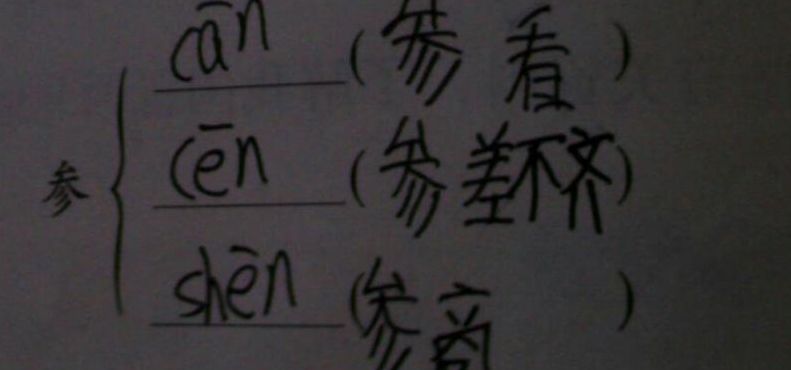 cān (参看)
参 cēn (参差不齐)
shēn (参商)